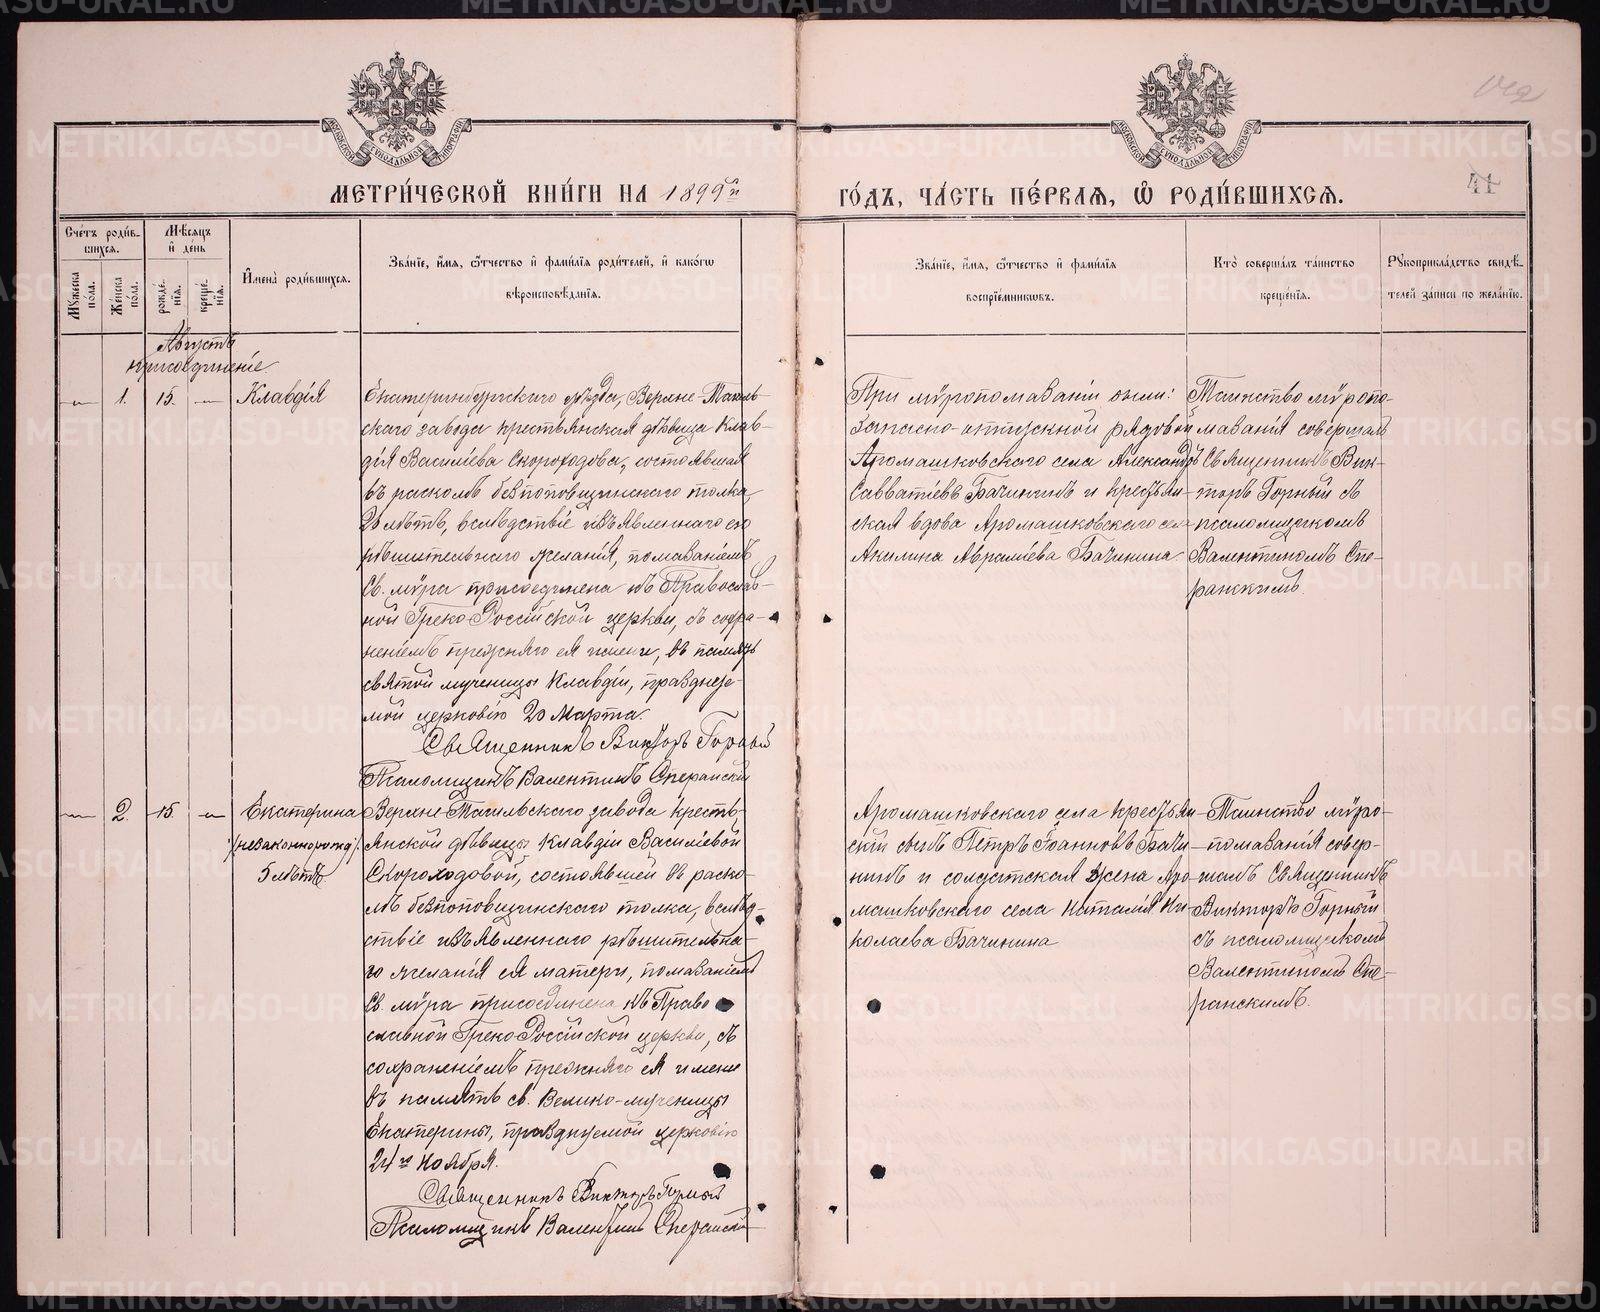 МЕТРИ́ЧЕСКОЙ КНИ́ГИ НА 1899й
ГО́ДЪ, ЧА́СТЬ ПЕ́РВАѦ, Ѡ РОДИ́ВШИХСѦ.
41
Сче́тъ роди́в-
шихсѧ.
Мѣ́сѧцъ
и҆ де́нь
Му́жеска
по́ла.
Же́нска
по́ла.
рожде́-
нїѧ.
креще́-
нїѧ.
И҆мена̀ роди́вшихсѧ.
Зва́нїе, и҆́мѧ, ѻ҆́тчество и҆ фами́лїѧ роди́телей, и҆ како́гѡ
вѣроисповѣ́данїѧ.
Зва́нїе, и҆́мѧ, ѻ҆́тчество и҆ фами́лїѧ
воспрїе́мниковъ.
Кто̀ соверша́лъ та́инство
креще́нїѧ.
Рꙋкоприкла́дство свидѣ́-
телей за́писи по жела́нїю.
Августъ
присоединеніе.
1. 15. Клавдія
Екатеринбургскаго уѣзда, Верхне-Тагиль-
скаго завода крестьянская дѣвица Клав-
дія Василіева Скороходова, состоявшая
въ расколѣ безпоповщинскаго толка,
20 лѣтъ, вслѣдствіе изъявленнаго ею
рѣшительнаго желанія, помазаніемъ
Св. мѵра присоединена къ Православ-
ной Греко-Россійской церкви, съ сохра-
неніемъ прежняго ея имени, въ память
святой мученицы Клавдіи, празднуе-
мой церковію 20 Марта.
Священникъ Викторъ Горный
Псаломщикъ Валентинъ Сперанскій
При мѵропомазаніи были:
Запасно-отпускной рядовой
Аромашковскаго села Александръ
Савватіевъ Бачининъ и крестьян-
ская вдова Аромашковскаго села
Акилина Авраміева Бачинина.
Таинство мѵропо-
мазанія совершалъ
Священникъ Вик-
торъ Горный съ
псаломщикомъ
Валентиномъ Спе-
ранскимъ.
2. 15. Екатерина
(незаконнорожд).
5 лѣтъ
Верхне-Тагильскаго завода кресть-
янской дѣвицы Клавдіи Василіевой
Скороходовой, состоявшей въ раско-
лѣ безпоповщинскаго толка, вслѣд-
ствіе изъявленнаго рѣшительна-
го желанія ея матери, помазаніемъ
Св. мѵра присоединена къ Право
славной Греко-Россійской церкви, съ
сохраненіемъ прежняго ея имени
въ память св. Велико-мученицы
Екатерины, празднуемой церковію
24го Ноября.
Священникъ Викторъ Горный
Псаломщикъ Валентинъ Сперанскій
Аромашковскаго села крестьян-
скій сынъ Петръ Іоанновъ Бачи-
нинъ и солдатская жена Аро-
машковскаго села Наталія Ни-
колаева Бачинина
Таинство мѵро-
помазанія совер-
шалъ Священникъ
Викторъ Горный
съ псаломщикомъ
Валентиномъ Спе-
ранскимъ.